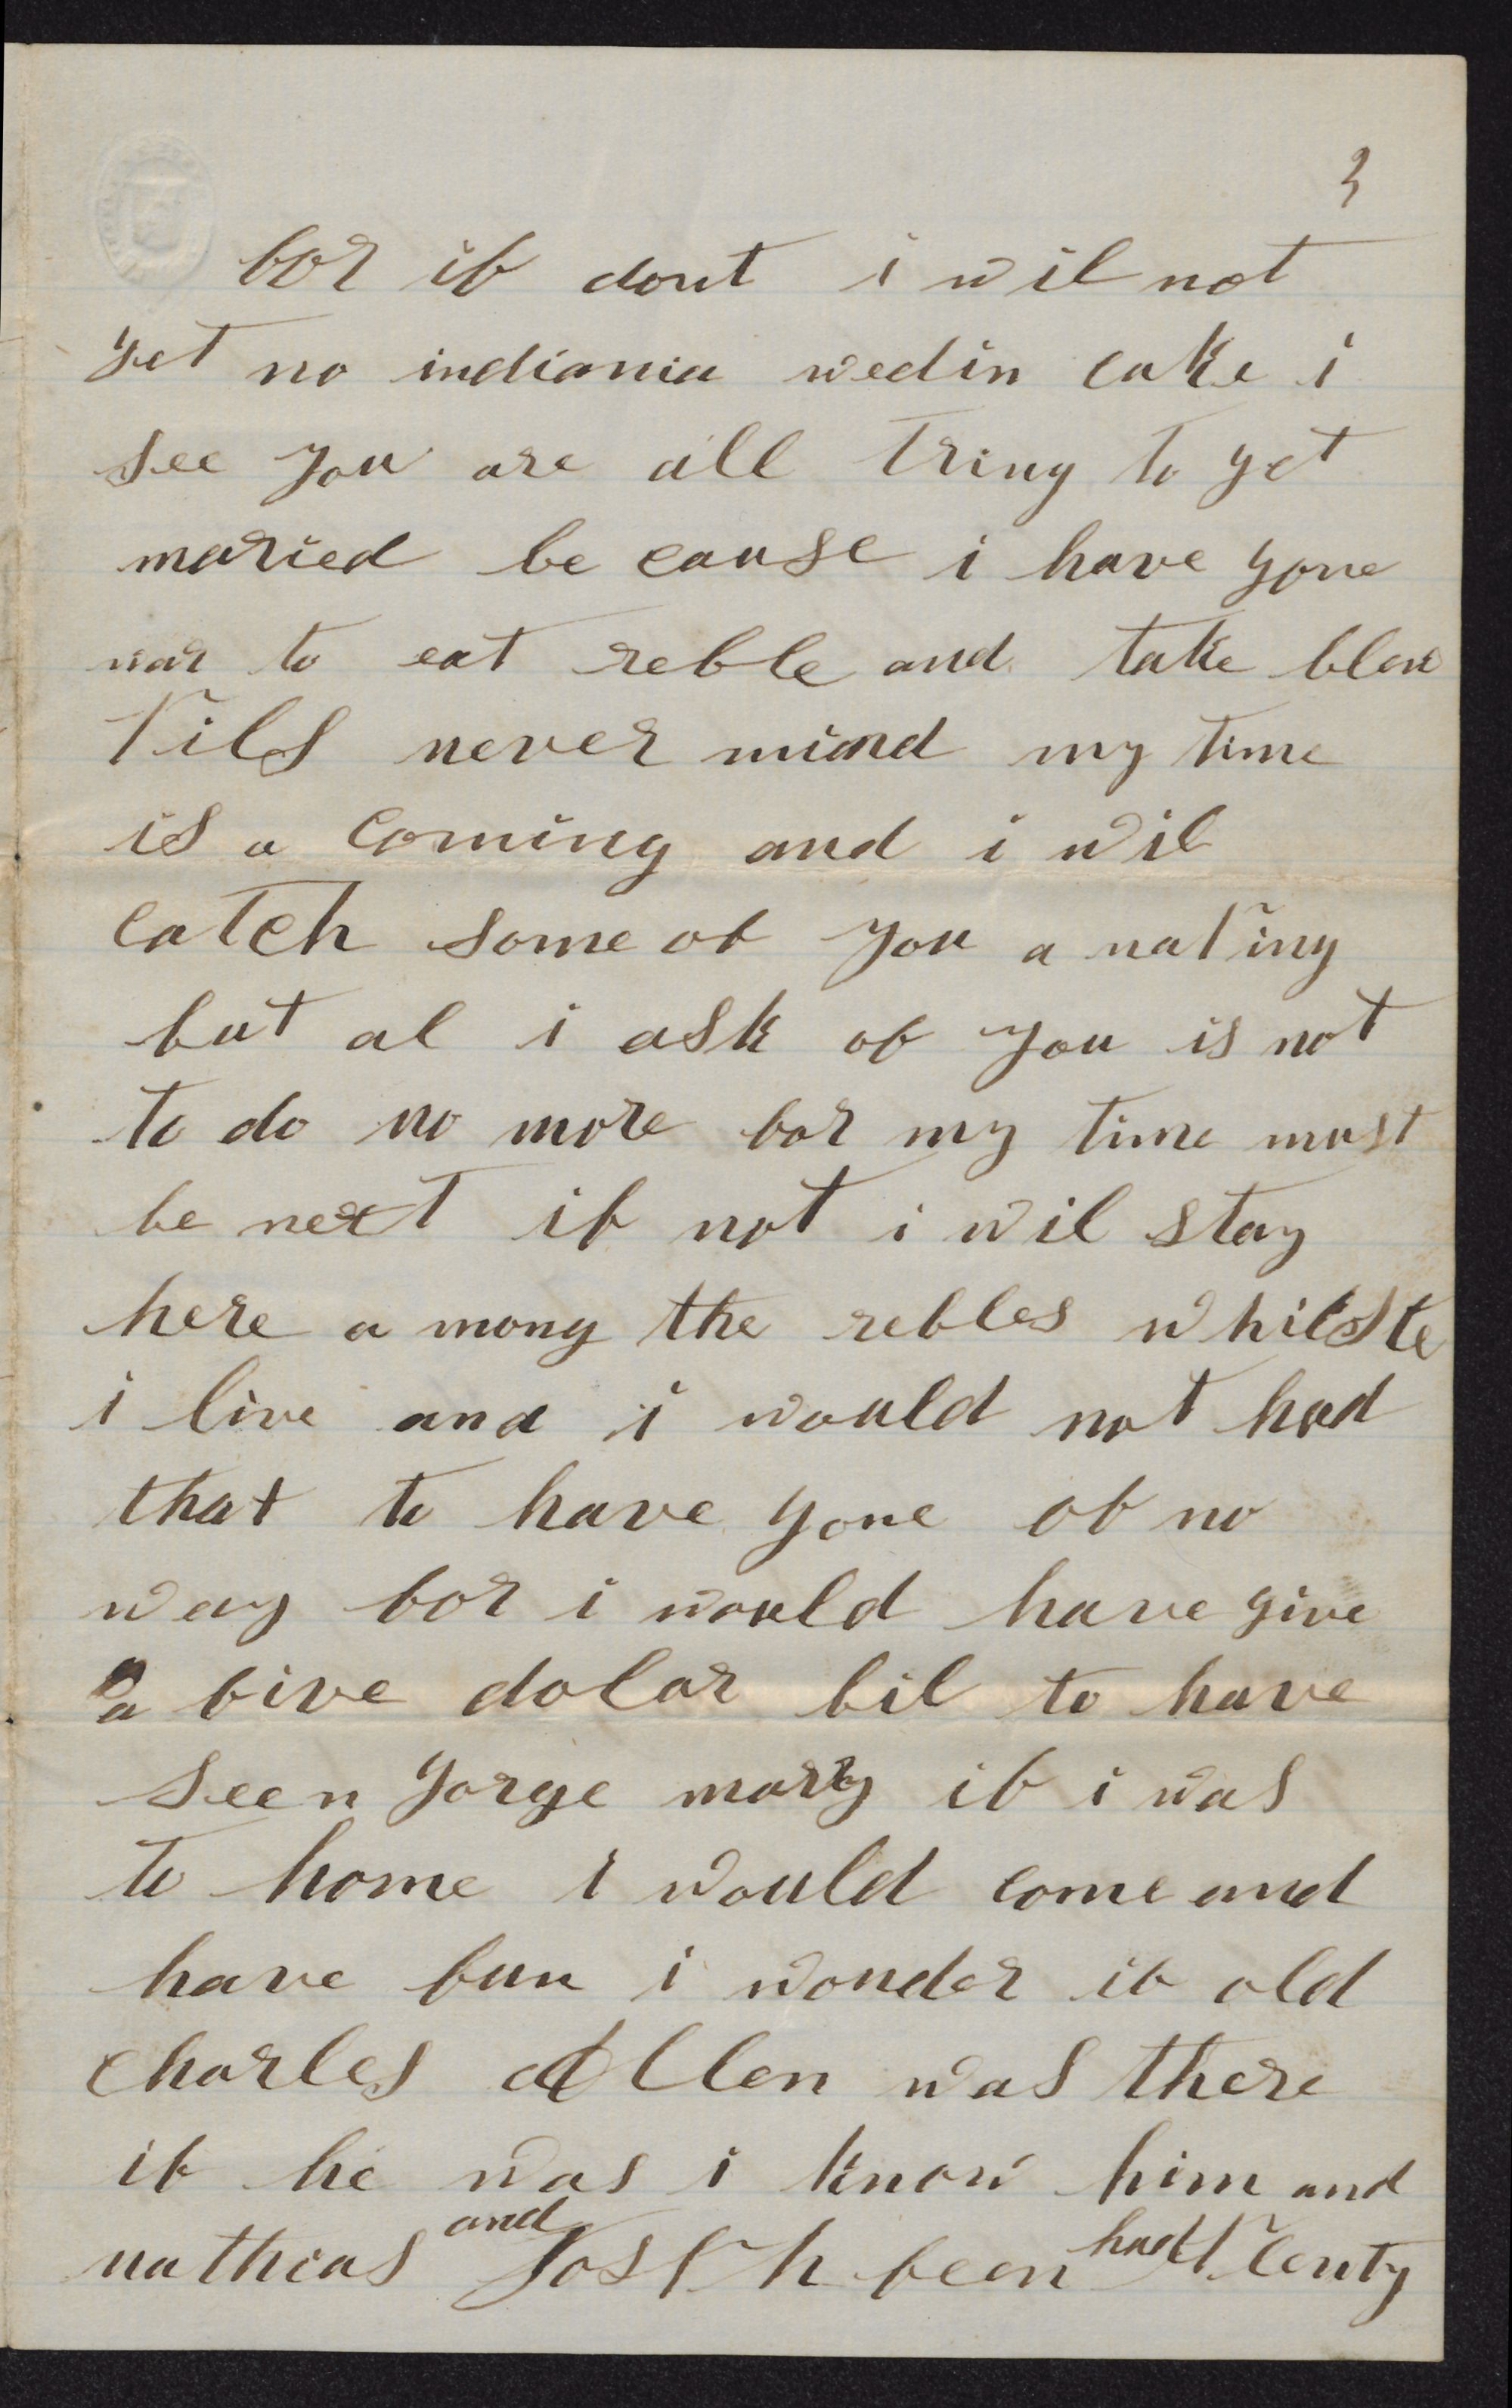 3
for if dont i wil not
get no indiania wedin cake i
see you are all tring to get
maried be cause i have gone
war to eat reble and take blew
pils never miand my time
is a coming and i wil
catch some of you a naping
but al i ask of you is not
to do no more for my time must
be next if not i wil stay
here a mong the rebles whilste
i live and i would not had
that to have gone of no
way for i would have give
a five dolar bil to have
seen gorge mary if i was
to home i would come and
have fun i wonder if old
charles allen was there
if he was i know him and
nathias and Josph been had plenty